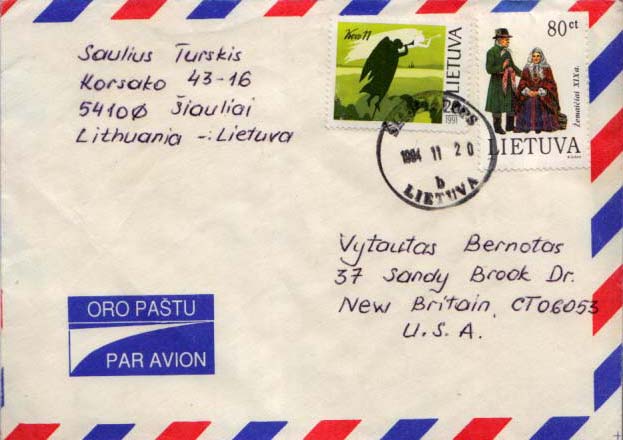 Saulius Turskis
Korsako 43-16
54100 Šiauliai
Lithuania - Lietuva
LIETUVA
1991
80ct
Žemaičiai XIXa.
LIETUVA
1994 11 20
b
LIETUVA
Vytautas Bernotas
37 Sandy Brook Dr.
New Britain, CT06053
U.S.A.
ORO PAŠTU
PAR AVION